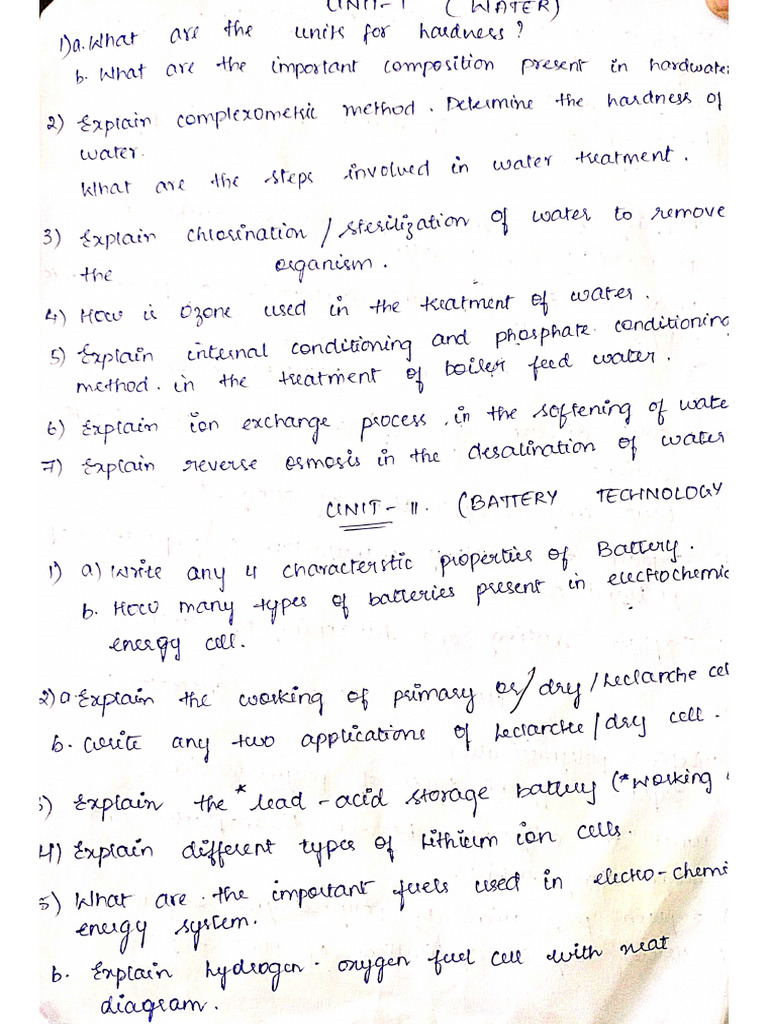 UNIT-I (WATER)
1)a. What are the units for hardness?
b. What are the important composition present in hardwater
2) Explain complexometric method. Determine the hardness of
water.
What are the steps involved in water treatment.
3) Explain chlorination / sterilization of water to remove
the organism.
4) How is ozone used in the treatment of water.
5) Explain internal conditioning and phosphate conditioning
method. in the treatment of boiler feed water.
6) Explain ion exchange process in the softening of wate
7) Explain reverse osmosis in the desalination of water
UNIT-II. (BATTERY TECHNOLOGY
1) a) Write any 4 characterstic properties of Battery.
b. How many types of batteries present in electrochemic
energy cell.
2) a. Explain the working of primary or / dry / Leclanche cel
b. Write any two applications of Leclanche / dry cell.
3) Explain the * lead-acid storage battery (*working
4) Explain different types of Lithium ion cells.
5) What are the important fuels used in electro-chemi
energy system.
b. Explain hydrogen-oxygen fuel cell with neat
diagram.